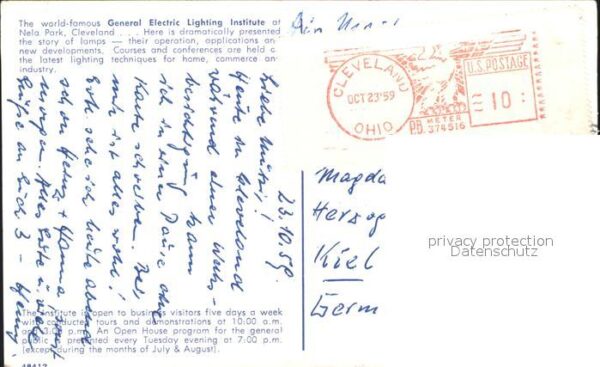 The world-famous General Electric Lighting Institute at
Nela Park, Cleveland . . . Here is dramatically presented
the story of lamps — their operation, applications an
new developments. Courses and conferences are held c
the latest lighting techniques for home, commerce an
industry.
CLEVELAND
OCT 23 '59
OHIO
U.S. POSTAGE
10
P.B. METER
374516
23.10.59.
Liebe Mutti!
Heute in Cleveland
während einer Werks-
besichtigung kann
ich in einer Pause eine
Karte schreiben. Bei
mir ist alles wohl!
Erste sehe ich heute abend
schon Heinz + Hanna, sonst
morgen. Alles Gute u. viele
Grüße an Euch 3 –
Magda
Herzog
Kiel
Germ
privacy protection
Datenschutz
The Institute is open to business visitors five days a week
with conducted tours and demonstrations at 10:00 a.m.
and 3:00 p.m. An Open House program for the general
public is presented every Tuesday evening at 7:00 p.m.
(except during the months of July & August).
48412